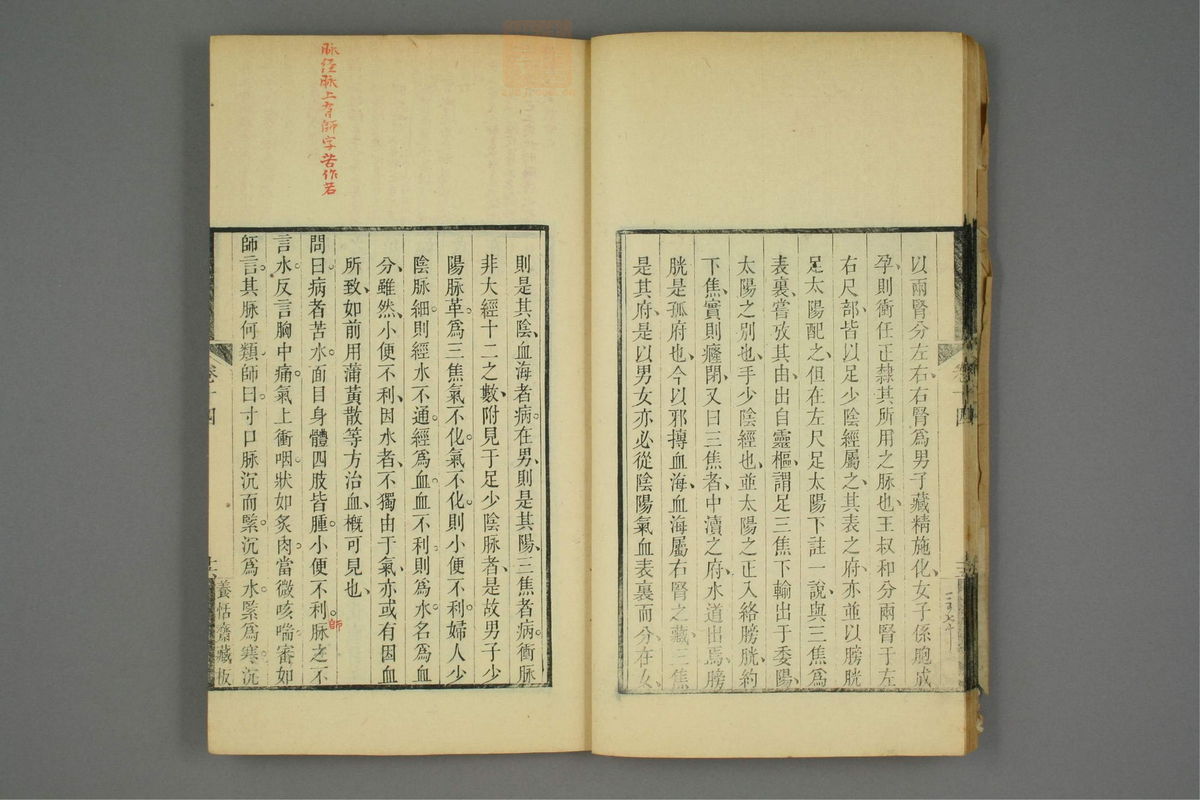 以兩腎分左右右腎爲男子藏精施化女子係胞成
孕則衝任正隸其所用之脉也王叔和分兩腎于左
右尺部皆以足少陰經屬之其表之府亦並以膀胱
足太陽配之但在左尺足太陽下註一說與三焦爲
表裏嘗攷其由出自靈樞謂足三焦下輸出于委陽
太陽之別也手少陰經也並太陽之正入絡膀胱約
下焦實則癃閉又曰三焦者中瀆之府水道出焉膀
胱是孤府也今以邪摶血海血海屬右腎之藏三焦
是其府是以男女亦必從陰陽氣血表裏而分在女
卷十四
則是其陰血海者病在男則是其陽三焦者病衝脈
非大經十二之數附見于足少陰脈者是故男子少
陽脉革爲三焦氣不化氣不化則小便不利婦人少
陰脉細則經水不通經爲血血不利則爲水名爲血
分雖然小便不利因水者不獨由于氣亦或有因血
所致如前用蒲黃散等方治血概可見也
問曰病者苦水面目身體四肢皆腫小便不利脉之不
師
言水反言胸中痛氣上衝咽狀如炙肉當微咳喘審如
師言其脉何類師曰寸口脉沉而緊沉爲水緊爲寒沉
卷十四
養恬齋藏板
脉經脉上有師字苦作若